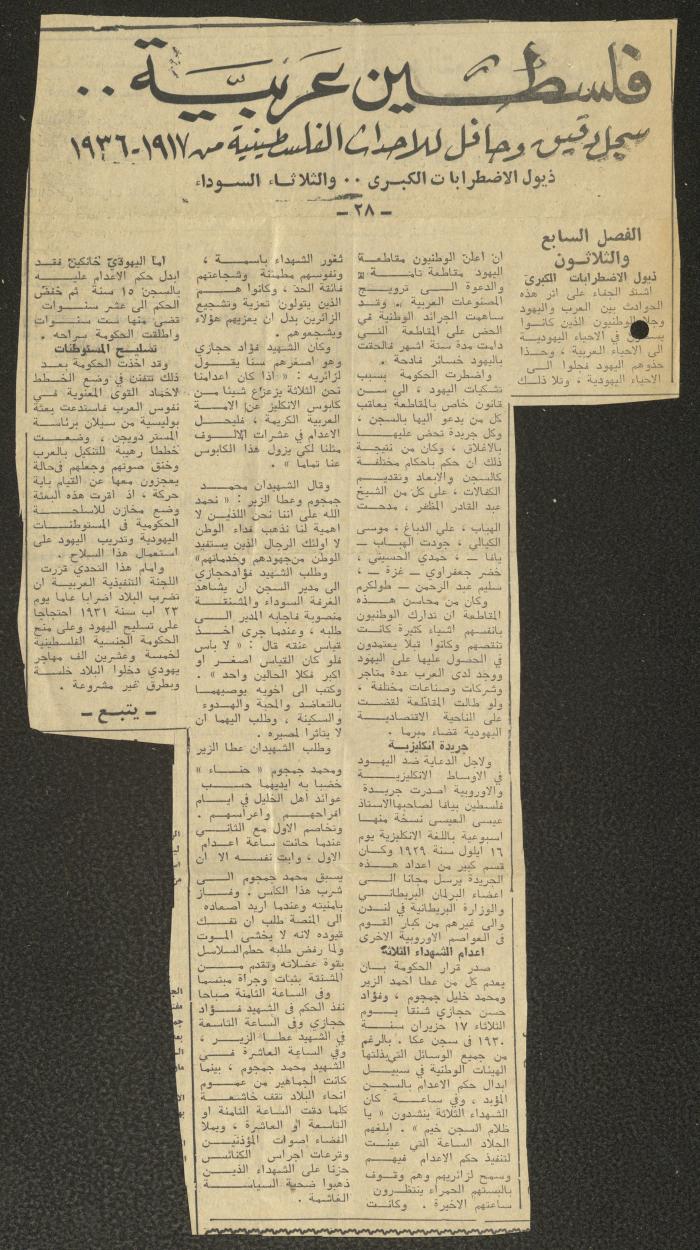 فلسطين عربية ..
سجل دقيق وحافل للاحداث الفلسطينية من ١٩١٧-١٩٣٦
ذيول الاضطرابات الكبرى .. والثلاثاء السوداء
- ٢٨ -
الفصل السابع
والثلاثون
ذيول الاضطرابات الكبرى
اشتد الجفاء على اثر هذه
الحوادث بين العرب واليهود
الوطنيون الذين كانوا
في الاحياء اليهودية
الى الاحياء العربية ، وحذا
حذوهم اليهود فجلوا الى
الاحياء اليهودية ، وتلا ذلك
ان اعلن الوطنيون مقاطعة
اليهود مقاطعة تامة
والدعوة الى ترويج
المصنوعات العربية .. وقد
ساهمت الجرائد الوطنية في
الحض على المقاطعة التي
دامت مدة ستة اشهر فالحقت
باليهود خسائر فادحة .
واضطرت الحكومة بسبب
تشكيات اليهود ، الى سن
قانون خاص بالمقاطعة يعاقب
كل من يدعو اليها بالسجن ،
وكل جريدة تحض عليها
بالاغلاق ، وكان من نتيجة
ذلك ان حكم باحكام مختلفة
كالسجن والابعاد وتقديم
الكفالات ، على كل من الشيخ
عبد القادر المظفر ، مدحت
الهباب ، علي الدباغ ، موسى
الكيالي ، جودت الهباب -
يافا - ، حمدي الحسيني ،
خضر جعفراوي - غزة - ،
سليم عبد الرحمن - طولكرم
وكان من محاسن هذه
المقاطعة ان تدارك الوطنيون
بانفسهم اشياء كثيرة كانت
تنقصهم وكانوا قبلا يعتمدون
في الحصول عليها على اليهود
ووجد لدى العرب عدة متاجر
وشركات وصناعات مختلفة ،
ولو طالت المقاطعة لقضت
على الناحية الاقتصادية
اليهودية قضاء مبرما .
جريدة انكليزية
ولاجل الدعاية ضد اليهود
في الاوساط الانكليزية
والاوروبية اصدرت جريدة
فلسطين بيافا لصاحبها الاستاذ
عيسى العيسى نسخة منها
اسبوعية باللغة الانكليزية يوم
١٦ ايلول سنة ١٩٢٩ وكان
قسم كبير من اعداد هذه
الجريدة يرسل مجانا الى
اعضاء البرلمان البريطاني
والوزارة البريطانية في لندن
والى غيرهم من كبار القوم
في العواصم الاوروبية الاخرى
اعدام الشهداء الثلاثة
صدر قرار الحكومة بان
يعدم كل من عطا احمد الزير
ومحمد خليل جمجوم ، وفؤاد
حسن حجازي شنقا يوم
الثلاثاء ١٧ حزيران سنة
١٩٣٠ في سجن عكا . بالرغم
من جميع الوسائل التي بذلتها
الهيئات الوطنية في سبيل
ابدال حكم الاعدام بالسجن
المؤبد ، وفي ساعة كان
الشهداء الثلاثة ينشدون « يا
ظلام السجن خيم » . ابلغهم
الجلاد الساعة التي عينت
لتنفيذ حكم الاعدام فيهم
وسمح لزائريهم وهم وقوف
بالبستهم الحمراء ينتظرون
ساعتهم الاخيرة . وكانت
ثغور الشهداء باسمة ،
ونفوسهم مطمئنة وشجاعتهم
فائقة الحد ، وكانوا هم
الذين يتولون تعزية وتشجيع
الزائرين بدل ان يعزيهم هؤلاء
ويشجعوهم .
وكان الشهيد فؤاد حجازي
وهو اصغرهم سنا يقول
لزائريه : « اذا كان اعدامنا
نحن الثلاثة يزعزع شيئا من
كابوس الانكليز عن الامة
العربية الكريمة ، فليحل
الاعدام في عشرات الالوف
مثلنا لكي يزول هذا الكابوس
عنا تماما » .
وقال الشهيدان محمد
جمجوم وعطا الزير : « نحمد
الله على اننا نحن اللذين لا
اهمية لنا نذهب فداء الوطن
لا اولئك الرجال الذين يستفيد
الوطن من جهودهم وخدماتهم»
وطلب الشهيد فؤاد حجازي
الى مدير السجن ان يشاهد
الغرفة السوداء والمشنقة
منصوبة فاجابه المدير الى
طلبه ، وعندما جرى اخذ
قياس عنقه قال : « لا باس
فلو كان القياس اصغر او
اكبر فكلا الحالين واحد » .
وكتب الى اخويه يوصيهما
بالتعاضد والمحبة والهدوء
والسكينة ، وطلب اليهما ان
لا يتأثرا لمصيره .
وطلب الشهيدان عطا الزير
ومحمد جمجوم « حناء »
خضبا به ايديهما حسب
عوائد اهل الخليل في ايام
افراحهم واعراسهم .
وتخاصم الاول مع الثاني
عندما حانت ساعة اعدام
الاول ، وابت نفسه الا ان
يسبق محمد جمجوم الى
شرب هذا الكاس . وفاز
بامنيته وعندما اريد اصعاده
الى المنصة طلب ان تفك
قيوده لانه لا يخشى الموت
ولما رفض طلبه حطم السلاسل
بقوة عضلاته وتقدم من
المشنقة بثبات وجراة مبتسما
وفي الساعة الثامنة صباحا
نفذ الحكم في الشهيد فؤاد
حجازي وفي الساعة التاسعة
في الشهيد عطا الزير ،
وفي الساعة العاشرة في
الشهيد محمد جمجوم ، بينما
كانت الجماهير من عموم
انحاء البلاد تقف خاشعة
كلما دقت الساعة الثامنة او
التاسعة او العاشرة ، ويملا
الفضاء اصوات المؤذنين
وقرعات اجراس الكنائس
حزنا على الشهداء الذين
ذهبوا ضحية السياسة
الغاشمة .
اما اليهودي خانكين فقد
ابدل حكم الاعدام عليه
بالسجن ١٥ سنة ثم خفض
الحكم الى عشر سنوات
قضى منها ست سنوات
واطلقت الحكومة سراحه .
تسليح المستوطنات
وقد اخذت الحكومة بعد
ذلك تتفنن في وضع الخطط
لاخماد القوى المعنوية في
نفوس العرب فاستدعت بعثة
بوليسية من سيلان برئاسة
المستر دوبجن ، وضعت
خططا رهيبة للتنكيل بالعرب
وخنق صوتهم وجعلهم في حالة
يعجزون معها عن القيام باية
حركة ، اذ اقرت هذه البعثة
وضع مخازن للاسلحة
الحكومية في المستوطنات
اليهودية وتدريب اليهود على
استعمال هذا السلاح .
وامام هذا التحدي قررت
اللجنة التنفيذية العربية ان
تضرب البلاد اضرابا عاما يوم
٢٣ اب سنة ١٩٣١ احتجاجا
على تسليح اليهود وعلى منح
الحكومة الجنسية الفلسطينية
لخمسة وعشرين الف مهاجر
يهودي دخلوا البلاد خلسة
وبطرق غير مشروعة .
- يتبع -